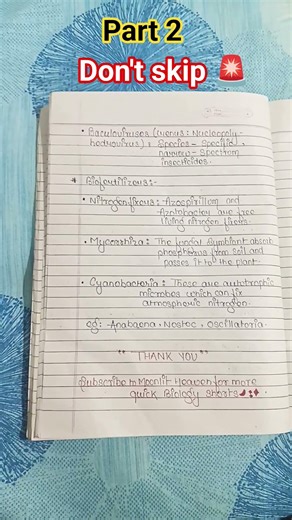 Part 2
Don't skip 🚨
• Baculoviruses (Genus: Nucleopoly-
hedrovirus) : Species - Specific,
narrow - Spectrum
insecticides.
* Biofertilizers:-
• Nitrogen fixers: Azospirillum and
Azotobacter are free
living nitrogen fixers.
• Mycorrhiza : The fungal symbiont absorb
phosphorus from soil and
passes it to the plant.
• Cyanobacteria : These are autotrophic
microbes which can fix
atmospheric nitrogen.
eg:- Anabaena, Nostoc, Oscillatoria.
" THANK YOU "
Subscribe to Moonlit Heaven for more
quick Biology shorts